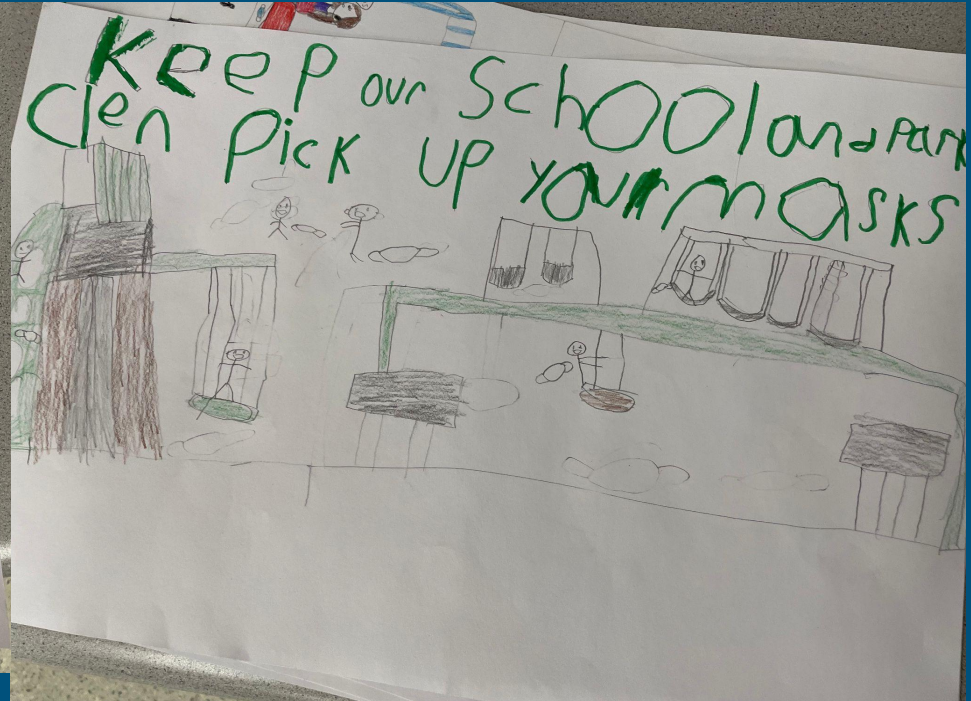 Keep our School and Park
Clen Pick up your masks